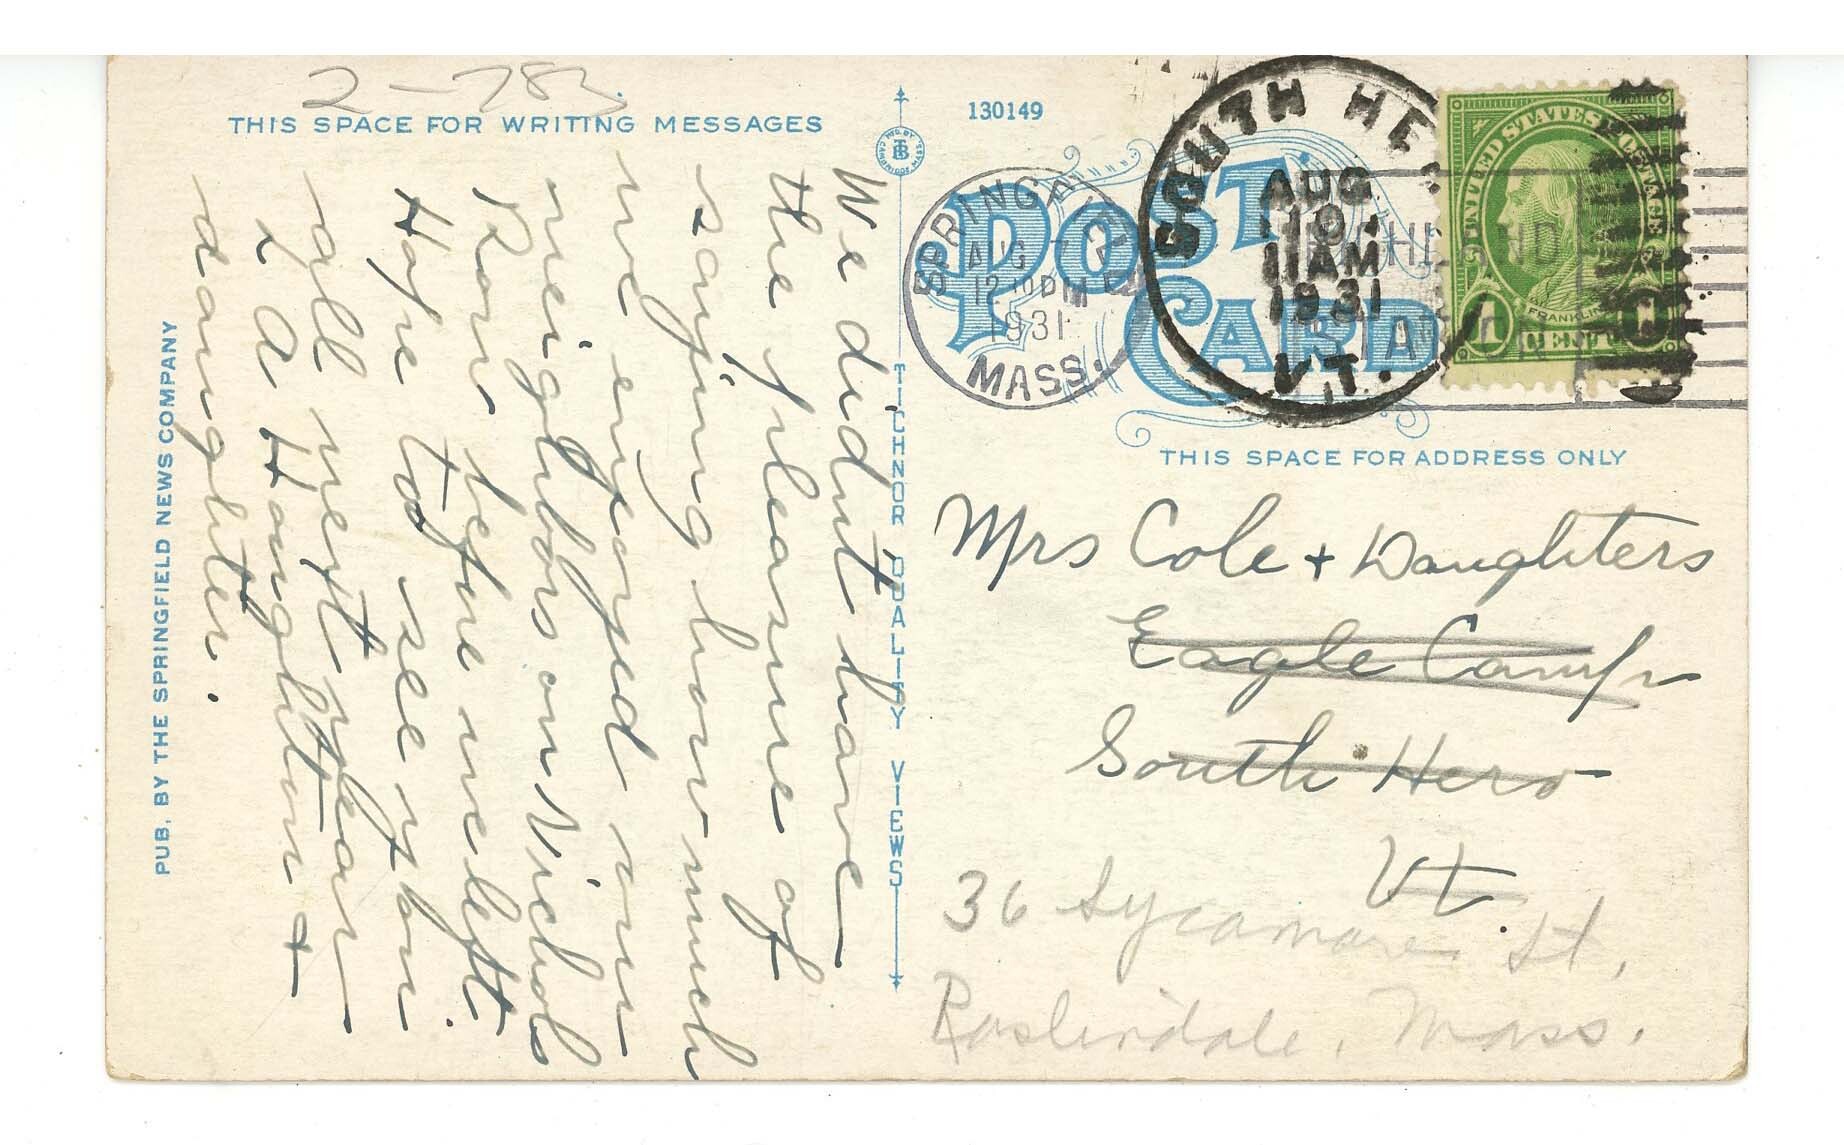 2-783
THIS SPACE FOR WRITING MESSAGES
We didn't have
the pleasure of
saying how much
we enjoyed our
neighbors on Nichols
Row before we left.
Hope to see you
all next year
L A Houghton +
daughter.
PUB. BY THE SPRINGFIELD NEWS COMPANY
MFG. BY
TB
CAMBRIDGE, MASS.
TICHNOR QUALITY VIEWS
130149
POST CARD
SPRINGFIELD
AUG 7
12 PM
1931
MASS.
SOUTH HE
AUG
10
11AM
1931
VT.
UNITED STATES POSTAGE
FRANKLIN
1 CENT 1
THIS SPACE FOR ADDRESS ONLY
Mrs Cole + Daughters
Eagle Camp
South Hero
Vt.
36 Sycamore St,
Roslindale, Mass.